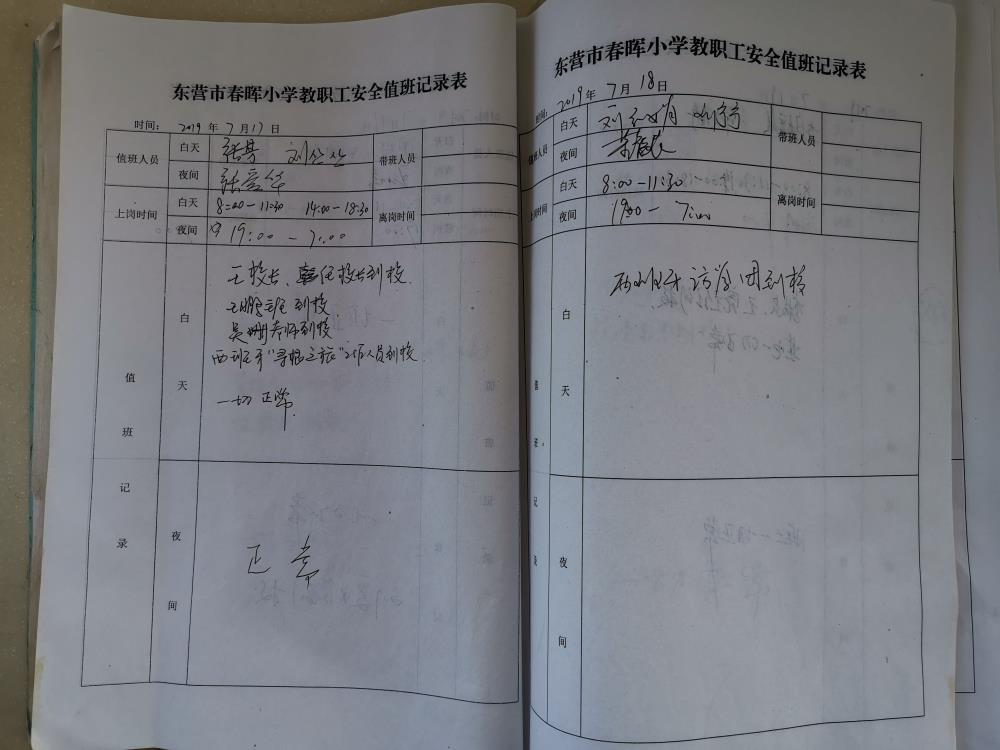 东营市春晖小学教职工安全值班记录表
时间： 2019 年 7 月 17 日
值班人员 白天 刘丛丛 带班人员 白天
夜间 张爱华 夜间
上岗时间 白天 8:00-11:30 14:00-18:30 离岗时间 白天
夜间 19:00-7:00 夜间
值班记录
白天
王校长、到校.
到校.
吴珊老师到校
西班牙"寻根之旅"工作人员到校
一切正常.
夜间
正常
东营市春晖小学教职工安全值班记录表
时间： 2019 年 7 月 18 日
值班人员 白天 带班人员
夜间
上岗时间 白天 8:00-11:30 离岗时间
夜间 19:00- 7:00
值班记录
白天
西班牙访学团到校
夜间